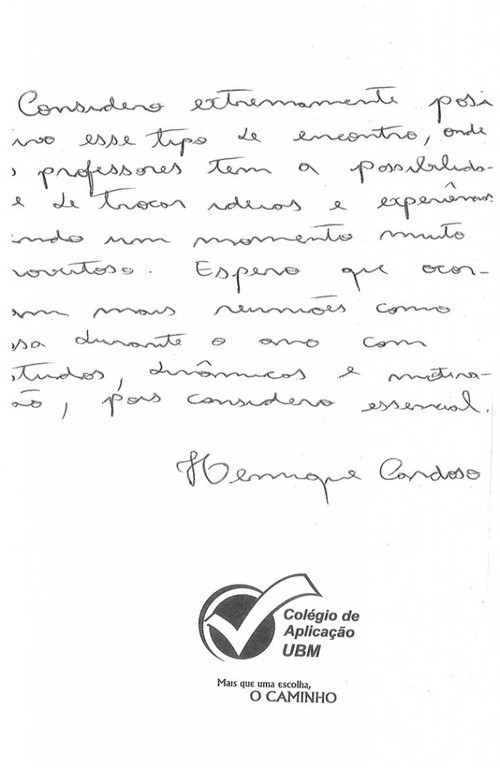 Considero extremamente posi
ivo esse tipo de encontro, onde
s professores tem a possibilida-
e de trocar ideias e experiências
indo um momento muito
roveitoso. Espero que ocor-
am mais reuniões como
ssa durante o ano com
studos, dinâmicas e motiva-
ão, pois considero essencial.
Henrique Cardoso
Colégio de
Aplicação
UBM
Mais que uma escolha,
O CAMINHO